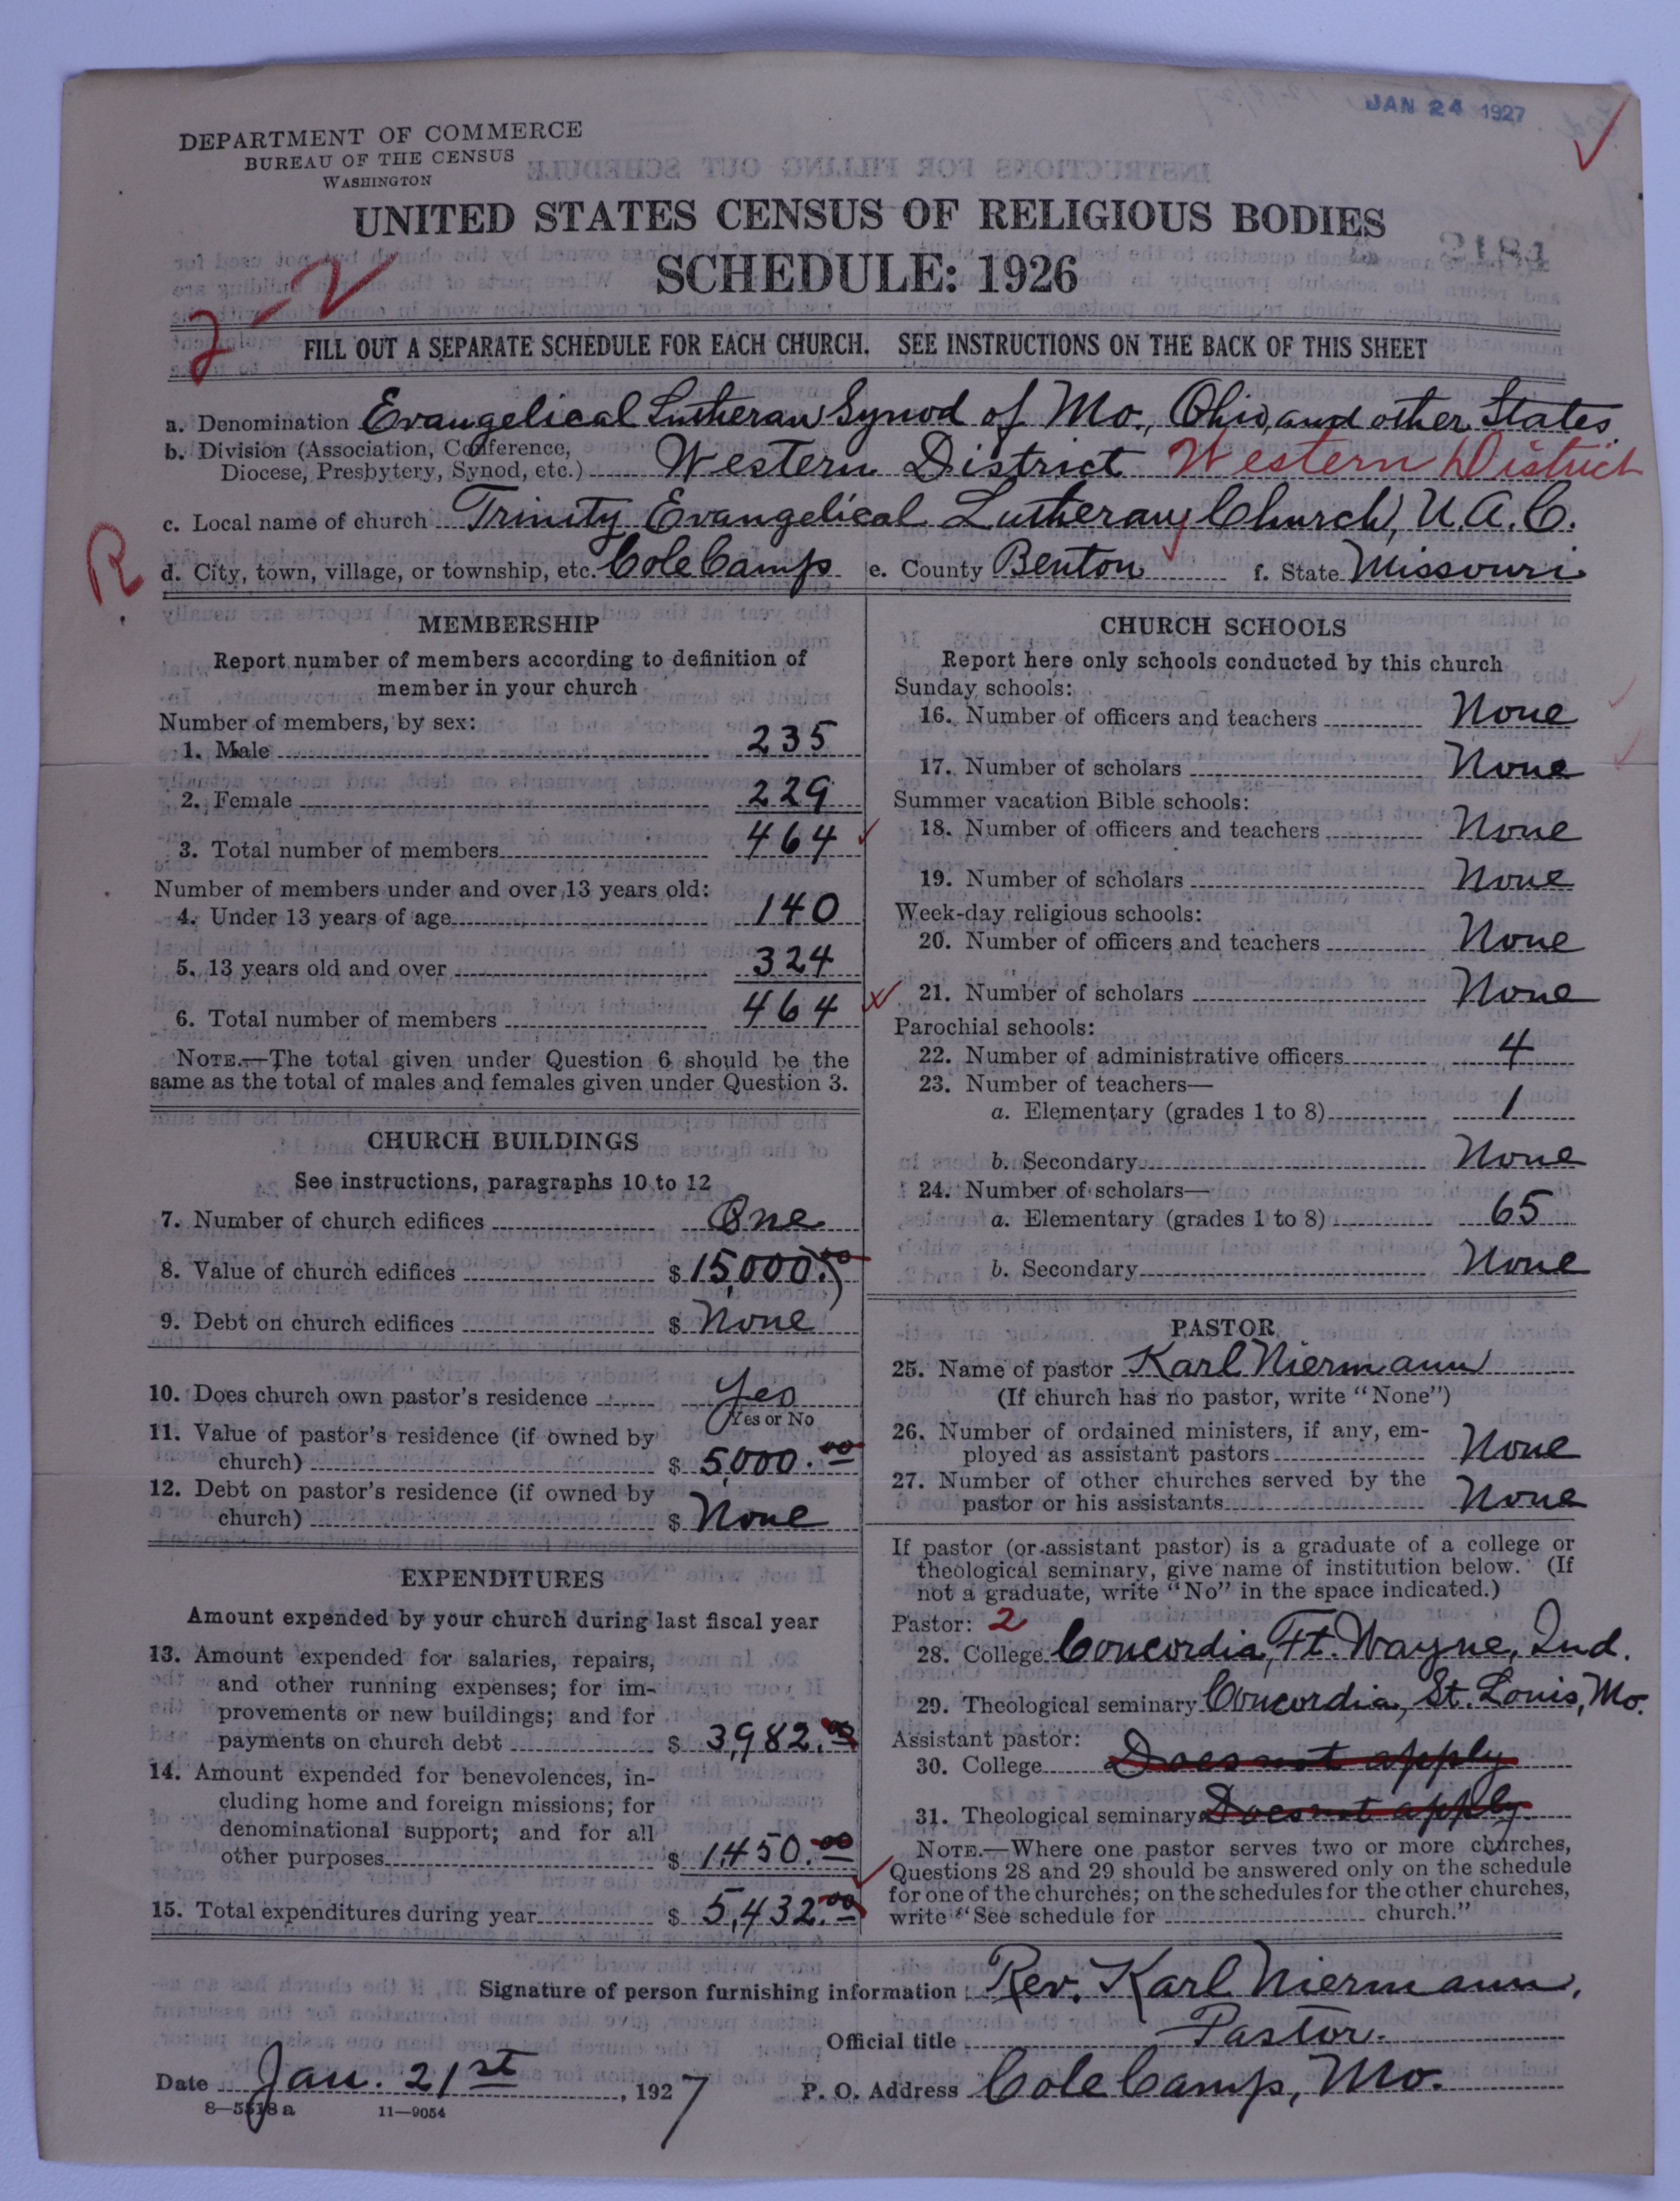 JAN 24 1927
DEPARTMENT OF COMMERCE
BUREAU OF THE CENSUS
WASHINGTON
UNITED STATES CENSUS OF RELIGIOUS BODIES
2184
SCHEDULE: 1926
2-2
FILL OUT A SEPARATE SCHEDULE FOR EACH CHURCH. SEE INSTRUCTIONS ON THE BACK OF THIS SHEET
a. Denomination Evangelical Lutheran Synod of Mo., Ohio, and other States
b. Division (Association, Conference,
Diocese, Presbytery, Synod, etc.) Western District Western District
c. Local name of church Trinity Evangelical Lutheran Church, U.A.C.
R
d. City, town, village, or township, etc. Cole Camp e. County Benton f. State Missouri
MEMBERSHIP
Report number of members according to definition of
member in your church
Number of members, by sex:
1. Male 235
2. Female 229
3. Total number of members 464
Number of members under and over 13 years old:
4. Under 13 years of age 140
5. 13 years old and over 324
6. Total number of members 464
NOTE.—The total given under Question 6 should be the
same as the total of males and females given under Question 3.
CHURCH BUILDINGS
See instructions, paragraphs 10 to 12
7. Number of church edifices One
8. Value of church edifices $ 15,000.00
9. Debt on church edifices $ None
10. Does church own pastor's residence Yes
Yes or No
11. Value of pastor's residence (if owned by
church) $ 5,000.00
12. Debt on pastor's residence (if owned by
church) $ None
EXPENDITURES
Amount expended by your church during last fiscal year
13. Amount expended for salaries, repairs,
and other running expenses; for im-
provements or new buildings; and for
payments on church debt $ 3,982.00
14. Amount expended for benevolences, in-
cluding home and foreign missions; for
denominational support; and for all
other purposes $ 1,450.00
15. Total expenditures during year $ 5,432.00
CHURCH SCHOOLS
Report here only schools conducted by this church
Sunday schools:
16. Number of officers and teachers None
17. Number of scholars None
Summer vacation Bible schools:
18. Number of officers and teachers None
19. Number of scholars None
Week-day religious schools:
20. Number of officers and teachers None
21. Number of scholars None
Parochial schools:
22. Number of administrative officers 4
23. Number of teachers—
a. Elementary (grades 1 to 8) 1
b. Secondary None
24. Number of scholars—
a. Elementary (grades 1 to 8) 65
b. Secondary None
PASTOR
25. Name of pastor Karl Niermann
(If church has no pastor, write "None")
26. Number of ordained ministers, if any, em-
ployed as assistant pastors None
27. Number of other churches served by the
pastor or his assistants None
If pastor (or assistant pastor) is a graduate of a college or
theological seminary, give name of institution below. (If
not a graduate, write "No" in the space indicated.)
Pastor: 2
28. College Concordia, Ft. Wayne, Ind.
29. Theological seminary Concordia, St. Louis, Mo.
Assistant pastor:
30. College Does not apply
31. Theological seminary Does not apply
NOTE.—Where one pastor serves two or more churches,
Questions 28 and 29 should be answered only on the schedule
for one of the churches; on the schedules for the other churches,
write "See schedule for church."
Signature of person furnishing information Rev. Karl Niermann,
Official title Pastor.
Date Jan. 21st, 1927 P. O. Address Cole Camp, Mo.
8—5518a 11—9054